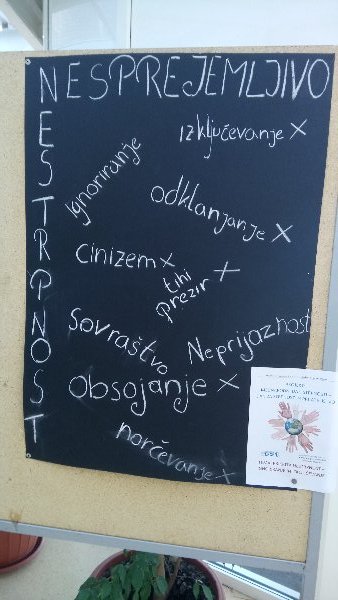 NESPREJEMLJIVO
NESTRPNOST
izključevanje x
ignoriranje
odklanjanje x
cinizem x
tihi
prezir x
sovraštvo
Neprijaznost
obsojanje x
norčevanje x